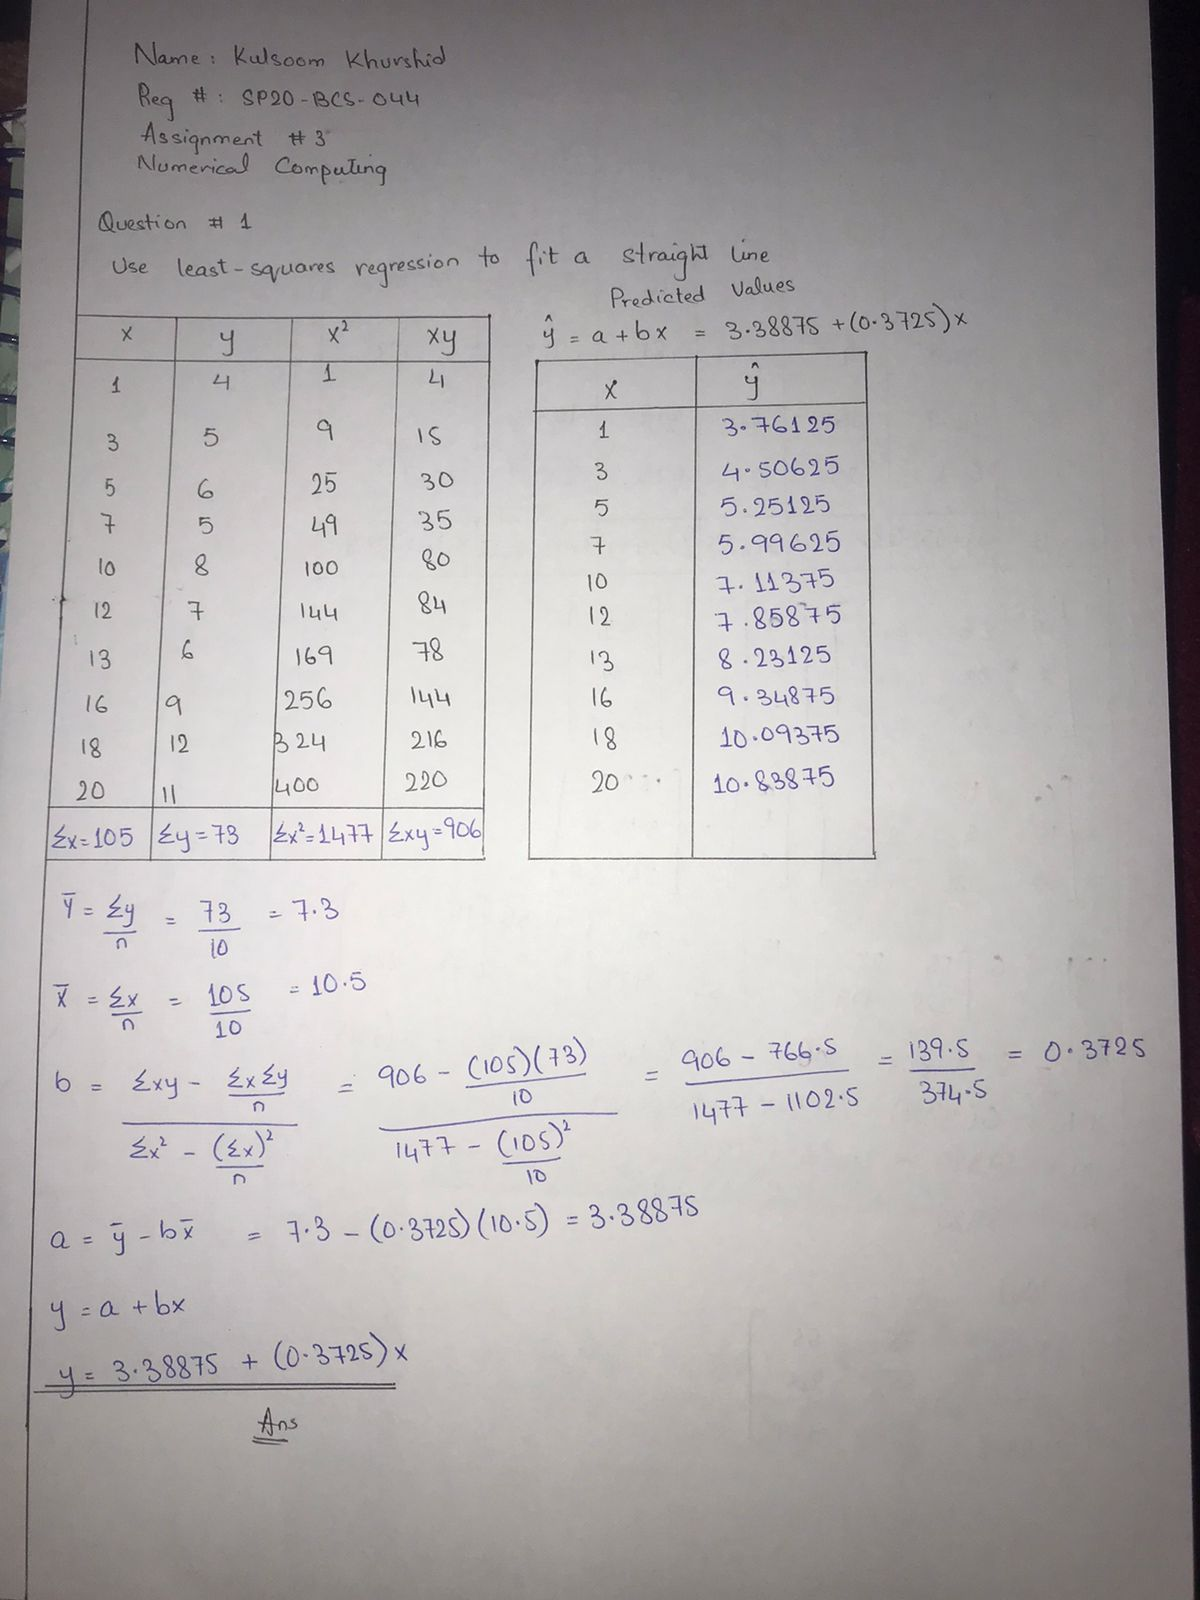 Name: Kulsoom Khurshid
Reg #: SP20-BCS-044
Assignment #3
Numerical Computing
Question # 1
Use least-squares regression to fit a straight line
x y x² xy
1 4 1 4
3 5 9 15
5 6 25 30
7 5 49 35
10 8 100 80
12 7 144 84
13 6 169 78
16 9 256 144
18 12 324 216
20 11 400 220
Σx=105 Σy=73 Σx²=1477 Σxy=906
Predicted Values
ŷ = a + bx = 3.38875 + (0.3725)x
x ŷ
1 3.76125
3 4.50625
5 5.25125
7 5.99625
10 7.11375
12 7.85875
13 8.23125
16 9.34875
18 10.09375
20 10.83875
Ȳ = Σy/n = 73/10 = 7.3
X̄ = Σx/n = 105/10 = 10.5
b = (Σxy - ΣxΣy/n)/(Σx² - (Σx)²/n) = (906 - (105)(73)/10)/(1477 - (105)²/10) = (906 - 766.5)/(1477 - 1102.5) = 139.5/374.5 = 0.3725
a = ȳ - bx̄ = 7.3 - (0.3725)(10.5) = 3.38875
y = a + bx
y = 3.38875 + (0.3725)x
Ans